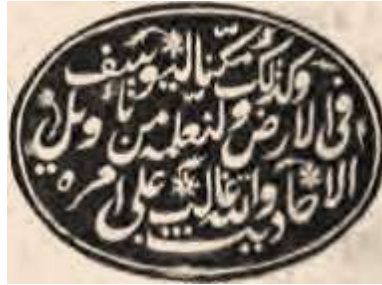 وكذلك مكنا ليوسف
في الارض ولنعلمه من تأويل
الاحاديث والله غالب على امره